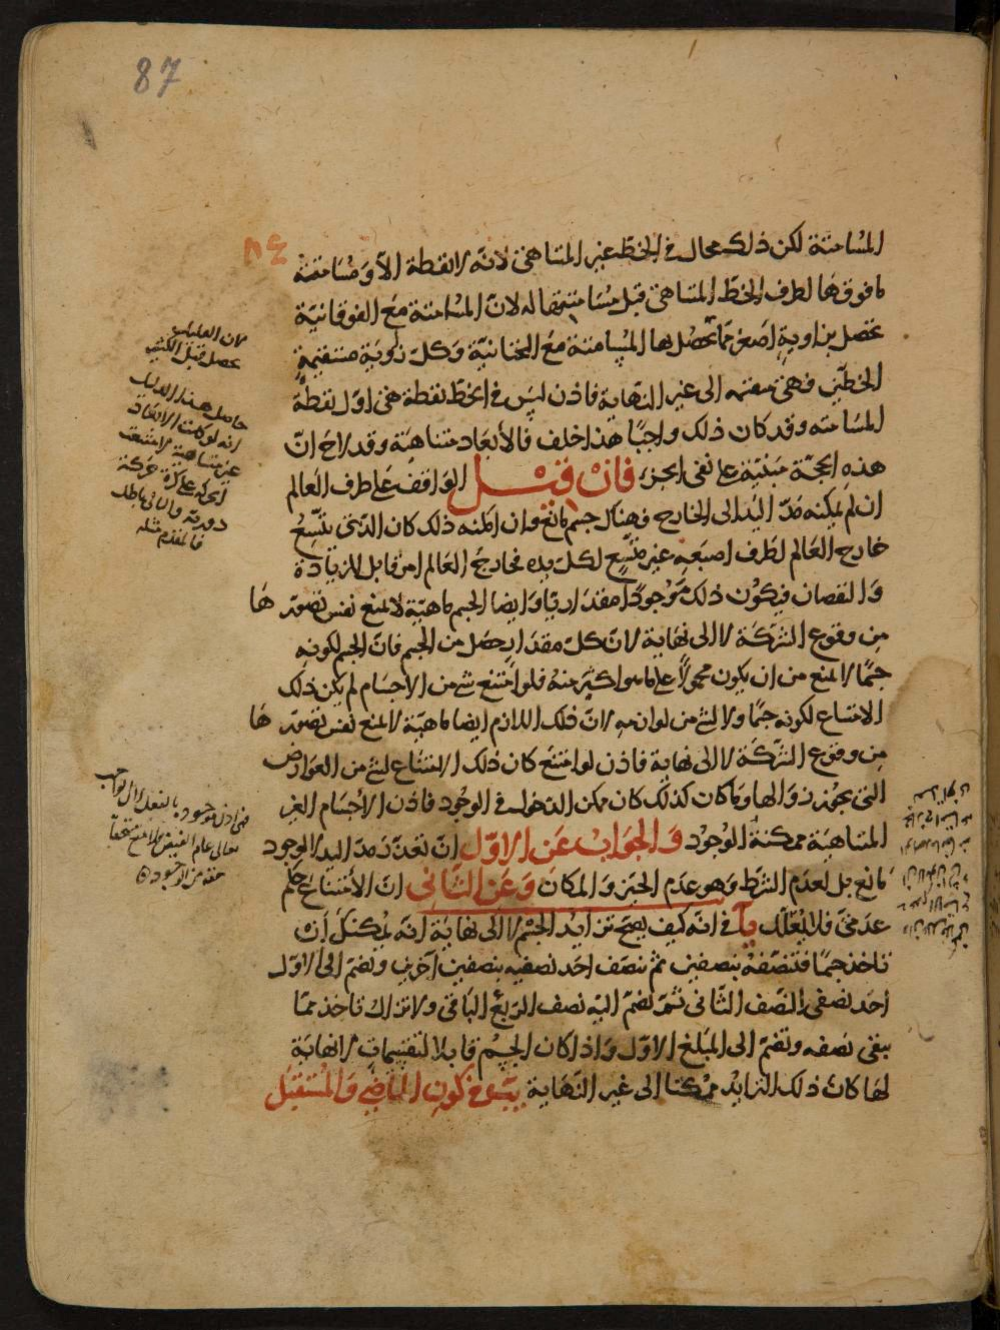 87
٨٤
المسامتة لكن ذلك محال في الخط غير المتناهي لانه لا نقطة الا ومسامتة
ما فوقها لطرف الخط المتناهي قبل مسامتتها له لان المسامتة مع الفوقانية
تحصل بزاوية اصغر مما تحصل بها المسامتة مع التحتانية وكل زاوية مستقيمة
الخطين فهي منقسمة الى غير النهاية فاذن ليس في الخط نقطة هي اول نقطة
المسامتة وقد كان ذلك واجبا هذا خلف فالأبعاد متناهية وقد لاح ان
هذه الحجة مبنية على نفي الجزء فان قيل الواقف على طرف العالم
ان لم يمكنه مد اليد الى الخارج فهناك جسم مانع وان امكنه ذلك كان الذي يتسع
خارج العالم لطرف اصبعه غير متسع لكل يده فخارج العالم امر قابل للزيادة
والنقصان فيكون ذلك موجودا مقداريا وايضا الجسم ماهية لا يمنع نفس تصورها
من وقوع الشركة لا الى نهاية لان كل مقدار يحصل من الجسم فان الجسم لكونه
جسما لا يمنع من ان يكون محمولا على ما هو اكثر منه فلو امتنع شئ من الأجسام لم يكن ذلك
الامتناع لكونه جسما ولا لشئ من لوازمه لان ذلك اللازم ايضا ماهية لا يمنع نفس تصورها
من وقوع الشركة لا الى نهاية فاذن لو امتنع كان ذلك الامتناع لشئ من العوارض
التي يجوز زوالها وما كان كذلك كان ممكن الدخول في الوجود فاذن الأجسام الغير
المتناهية ممكنة الوجود والجواب عن الاول ان تعذر مد اليد لا لوجود
مانع بل لعدم الشرط وهو عدم الحيز والمكان وعن الثاني ان الأمتناع حكم
عدمي فلا يعلل يا في انه كيف يصح تزايد الجسم لا الى نهاية انه يمكننا ان
ناخذ جسما فننصفه بنصفين ثم ننصف احد نصفيه بنصفين آخرين ونضم الى الاول
احد نصفي النصف الثاني ثم نضم اليه نصف الربع الباقي ولا نزال ناخذ مما
بقي نصفه ونضم الى المبلغ الاول واذا كان الجسم قابلا لتقسيمات لا نهاية
لها كان ذلك التزايد ممكنا الى غير النهاية يب في كون الماضي والمستقبل
حاصل هذا الدليل
انه لو كانت الابعاد
غير متناهية لامتنعت
الحركة على كرة حركة
دورية والتالي باطل
فالمقدم مثله